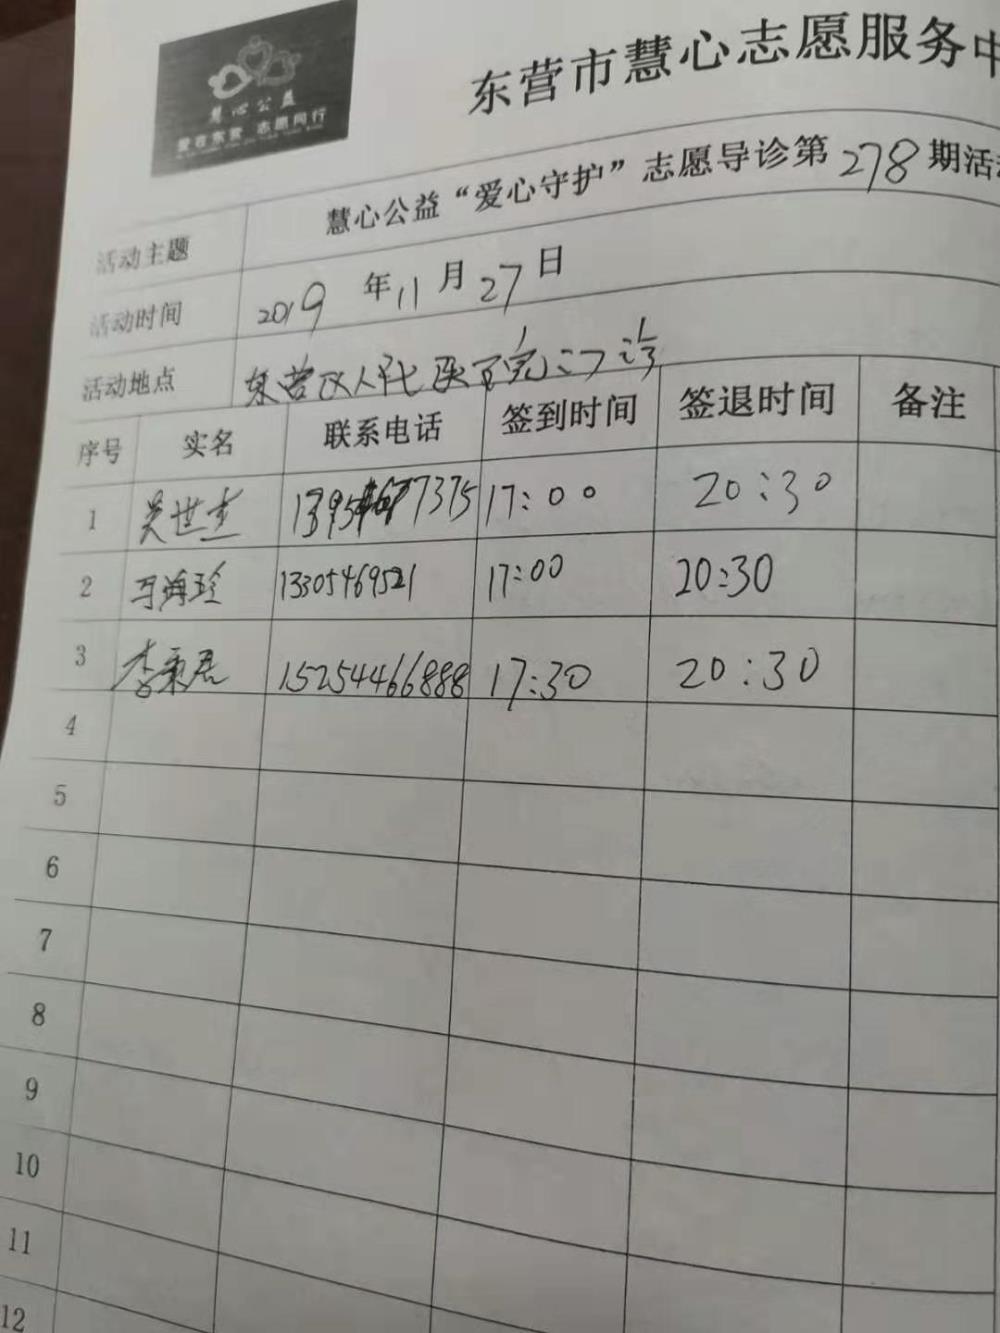 慧心公益
爱在东营 志愿同行
东营市慧心志愿服务中
活动主题 慧心公益“爱心守护”志愿导诊第278期活动
活动时间 2019年11月27日
活动地点 东营区人民医院门诊
序号 实名 联系电话 签到时间 签退时间 备注
1 吴世杰 7375 17:00 20:30
2 马海珍 13305469521 17:00 20:30
3 李秉君 15254466888 17:30 20:30
4
5
6
7
8
9
10
11
12